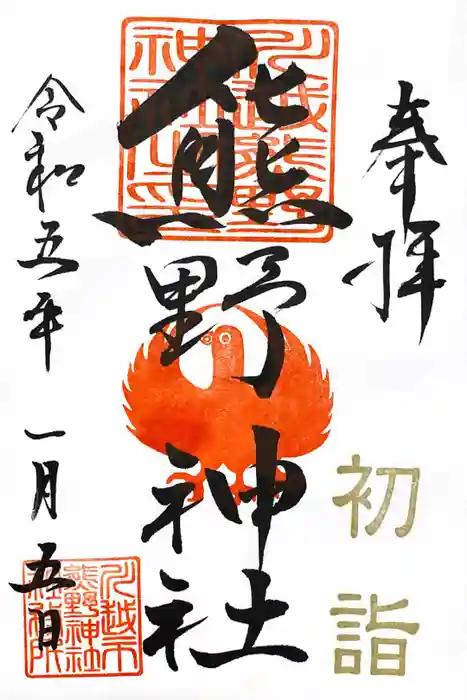 奉拝
初詣
熊野神社
川越熊野
神社之印
令和五年 一月五日
川越市
熊野神社
社務所